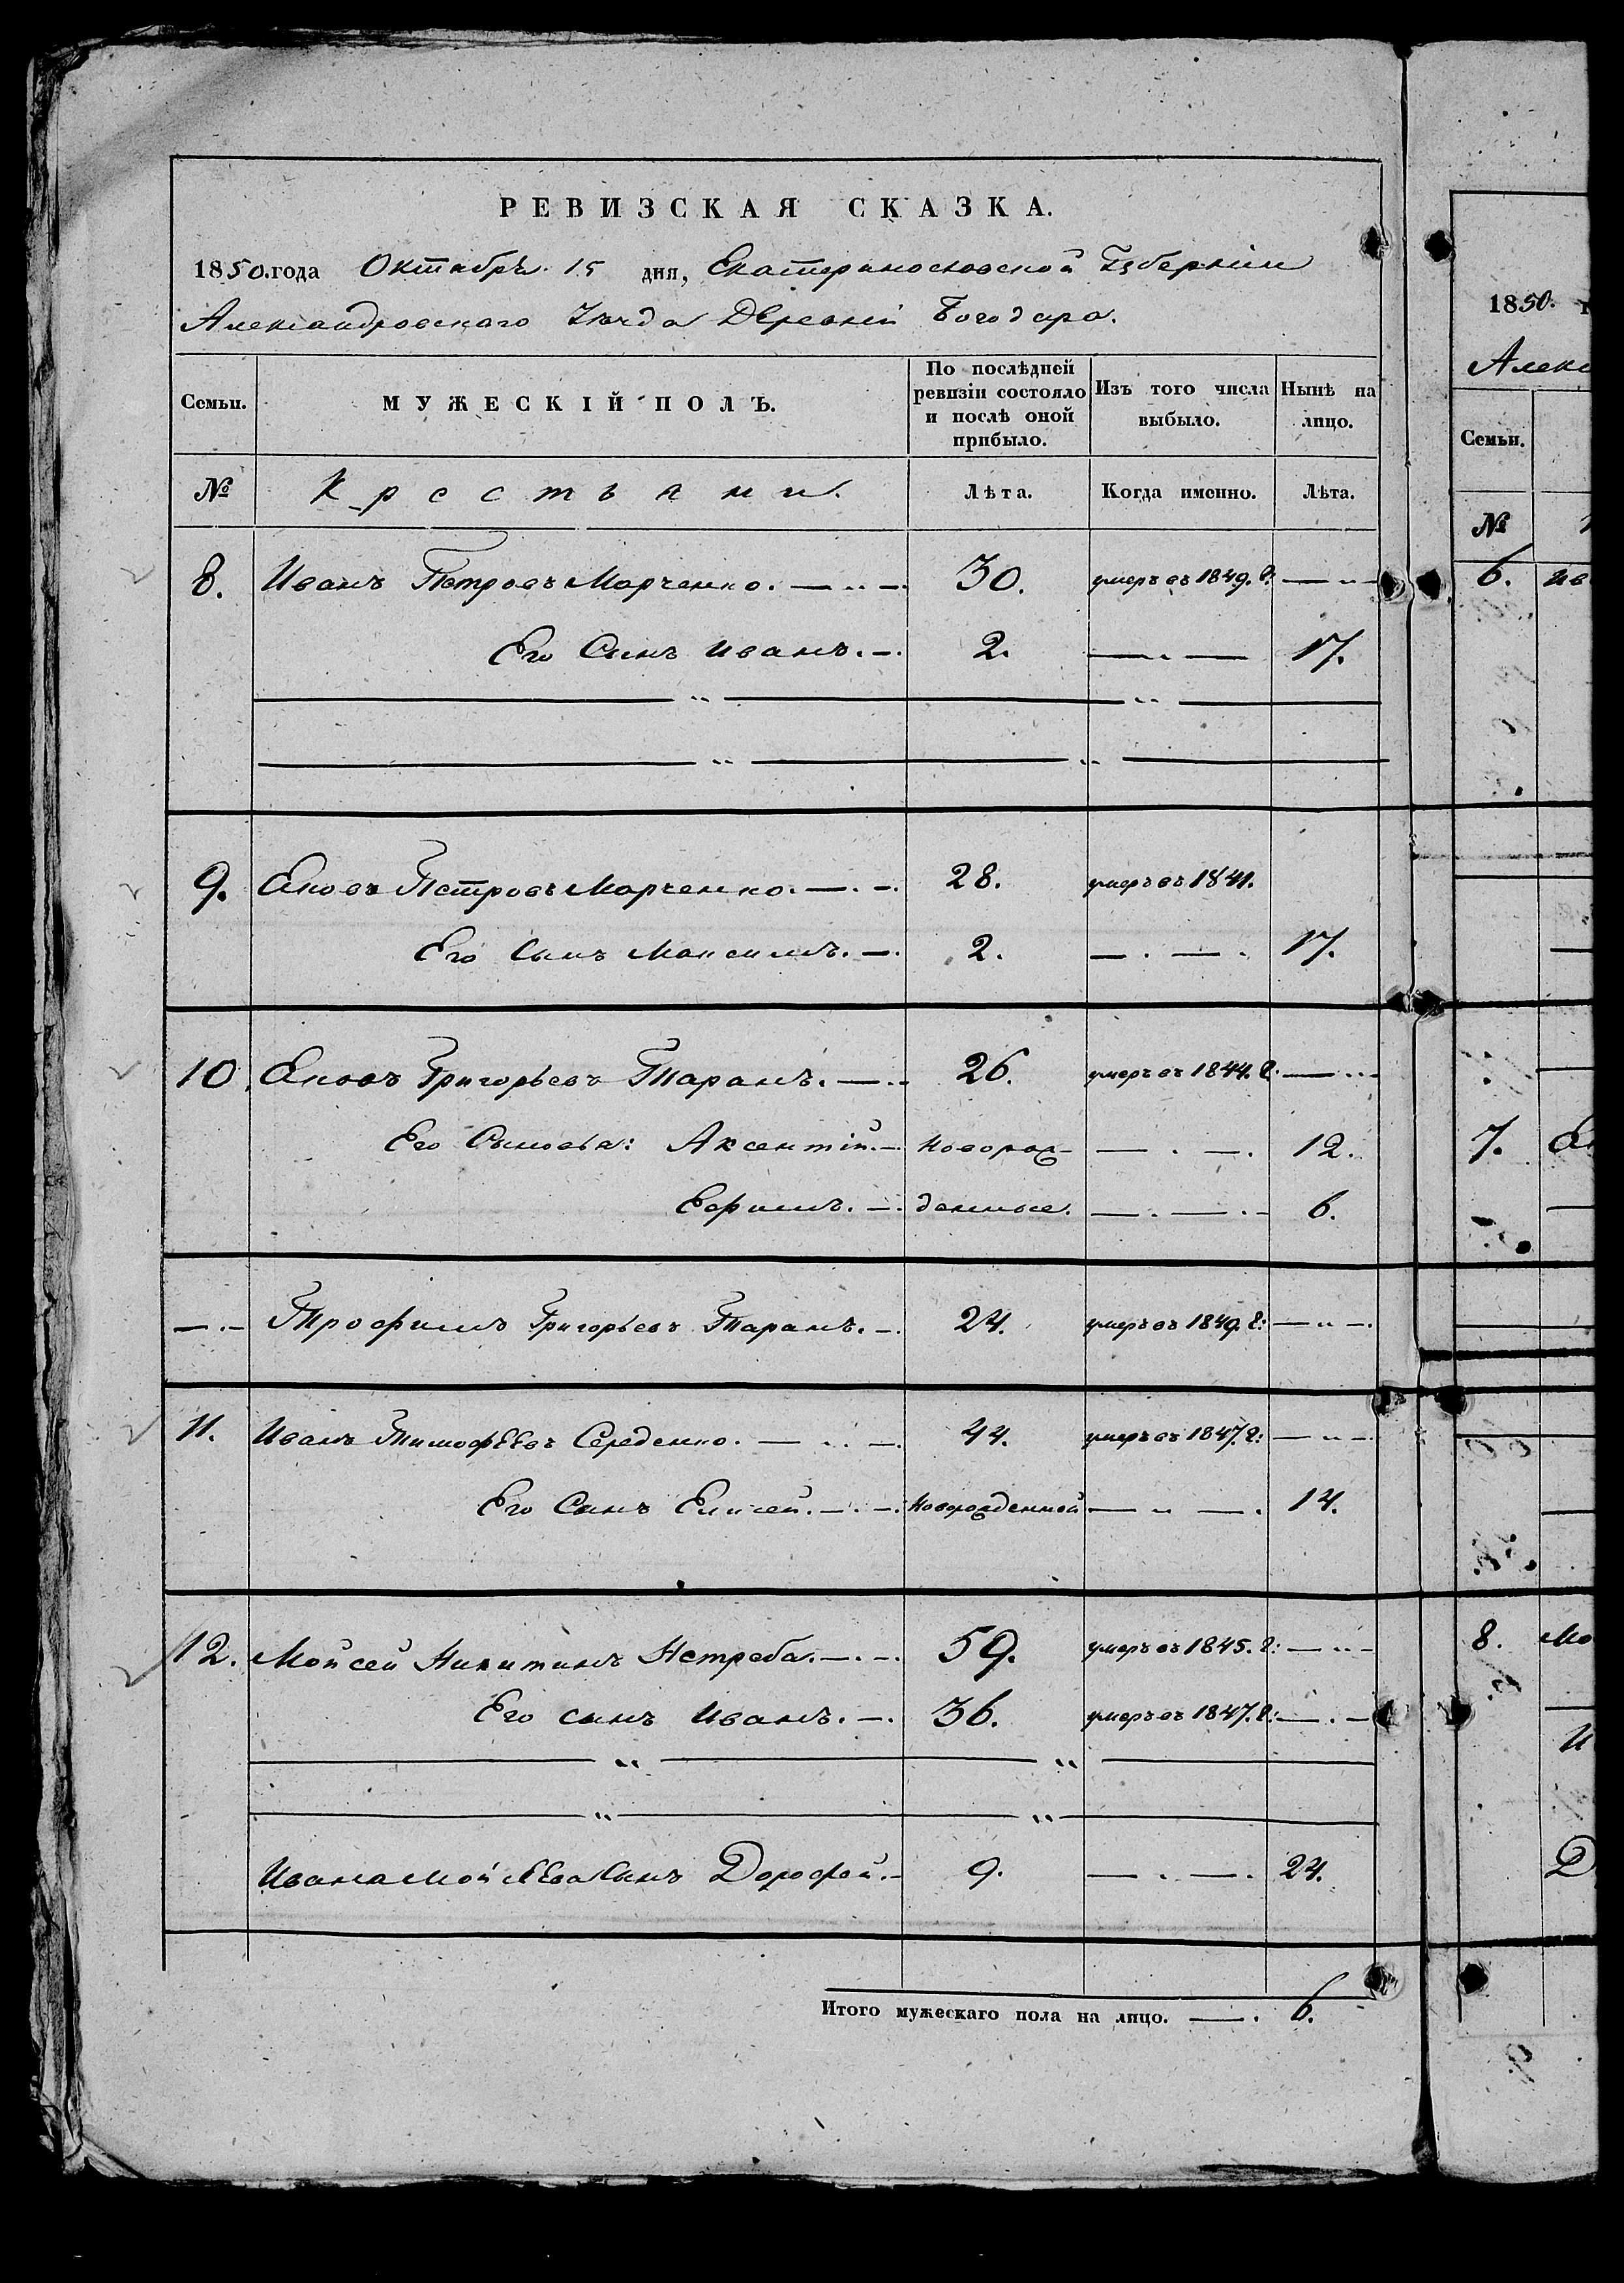 РЕВИЗСКАЯ СКАЗКА.
1850. года Октября 15 дня, Екатеринославской Губернии
Александровского Уезда Деревни Богодара.
Семьи. МУЖЕСКІЙ ПОЛЪ. По послѣдней ревизіи состояло и послѣ оной прибыло. Изъ того числа выбыло. Нынѣ на лицо.
№ Крестьяни. Лѣта. Когда именно. Лѣта.
8. Иванъ Петровъ Марченко. 30. умеръ въ 1849. г:
Его Сынъ Иванъ. 2. 17.
9. Яковъ Петровъ Марченко. 28. умеръ въ 1841.
Его Сынъ Максимъ. 2. 17.
10. Яковъ Григорьевъ Таранъ. 26. умеръ въ 1844. г.
Его Сыновья: Аксентій. новорож- 12.
Ефимъ. денные. 6.
Трофимъ Григорьевъ Таранъ. 24. умеръ въ 1849. г:
11. Иванъ Тимофеевъ Середенко. 44. умеръ въ 1847. г:
Его Сынъ Елисей. Новорожденной 14.
12. Мойсей Никитинъ Ястреба. 59. умеръ въ 1845. г:
Его сынъ Иванъ. 36. умеръ въ 1847. г:
Ивана Мойсеева Сынъ Дорофей. 9. 24.
Итого мужескаго пола на лицо. 6.
1850.
Семьи.
№
6.
7.
8.